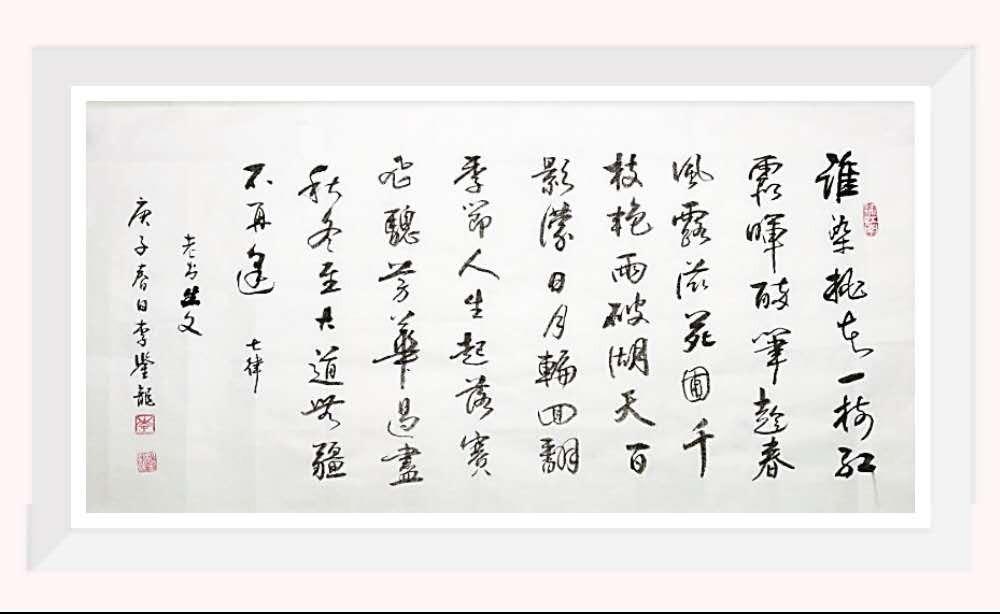 誰染桃花一樹紅
霞暉醉筆趁春
風露滋苑圃千
枝艳雨破湖天百
影濛日月輪回翻
季節人生起落賽
飛驄芳華過盡
秋冬至大道無疆
不再逢 七律
老書生文
庚子春日李龍